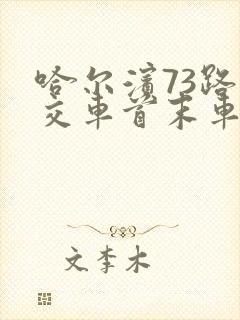 哈尔滨73路
交车首末车
文李木